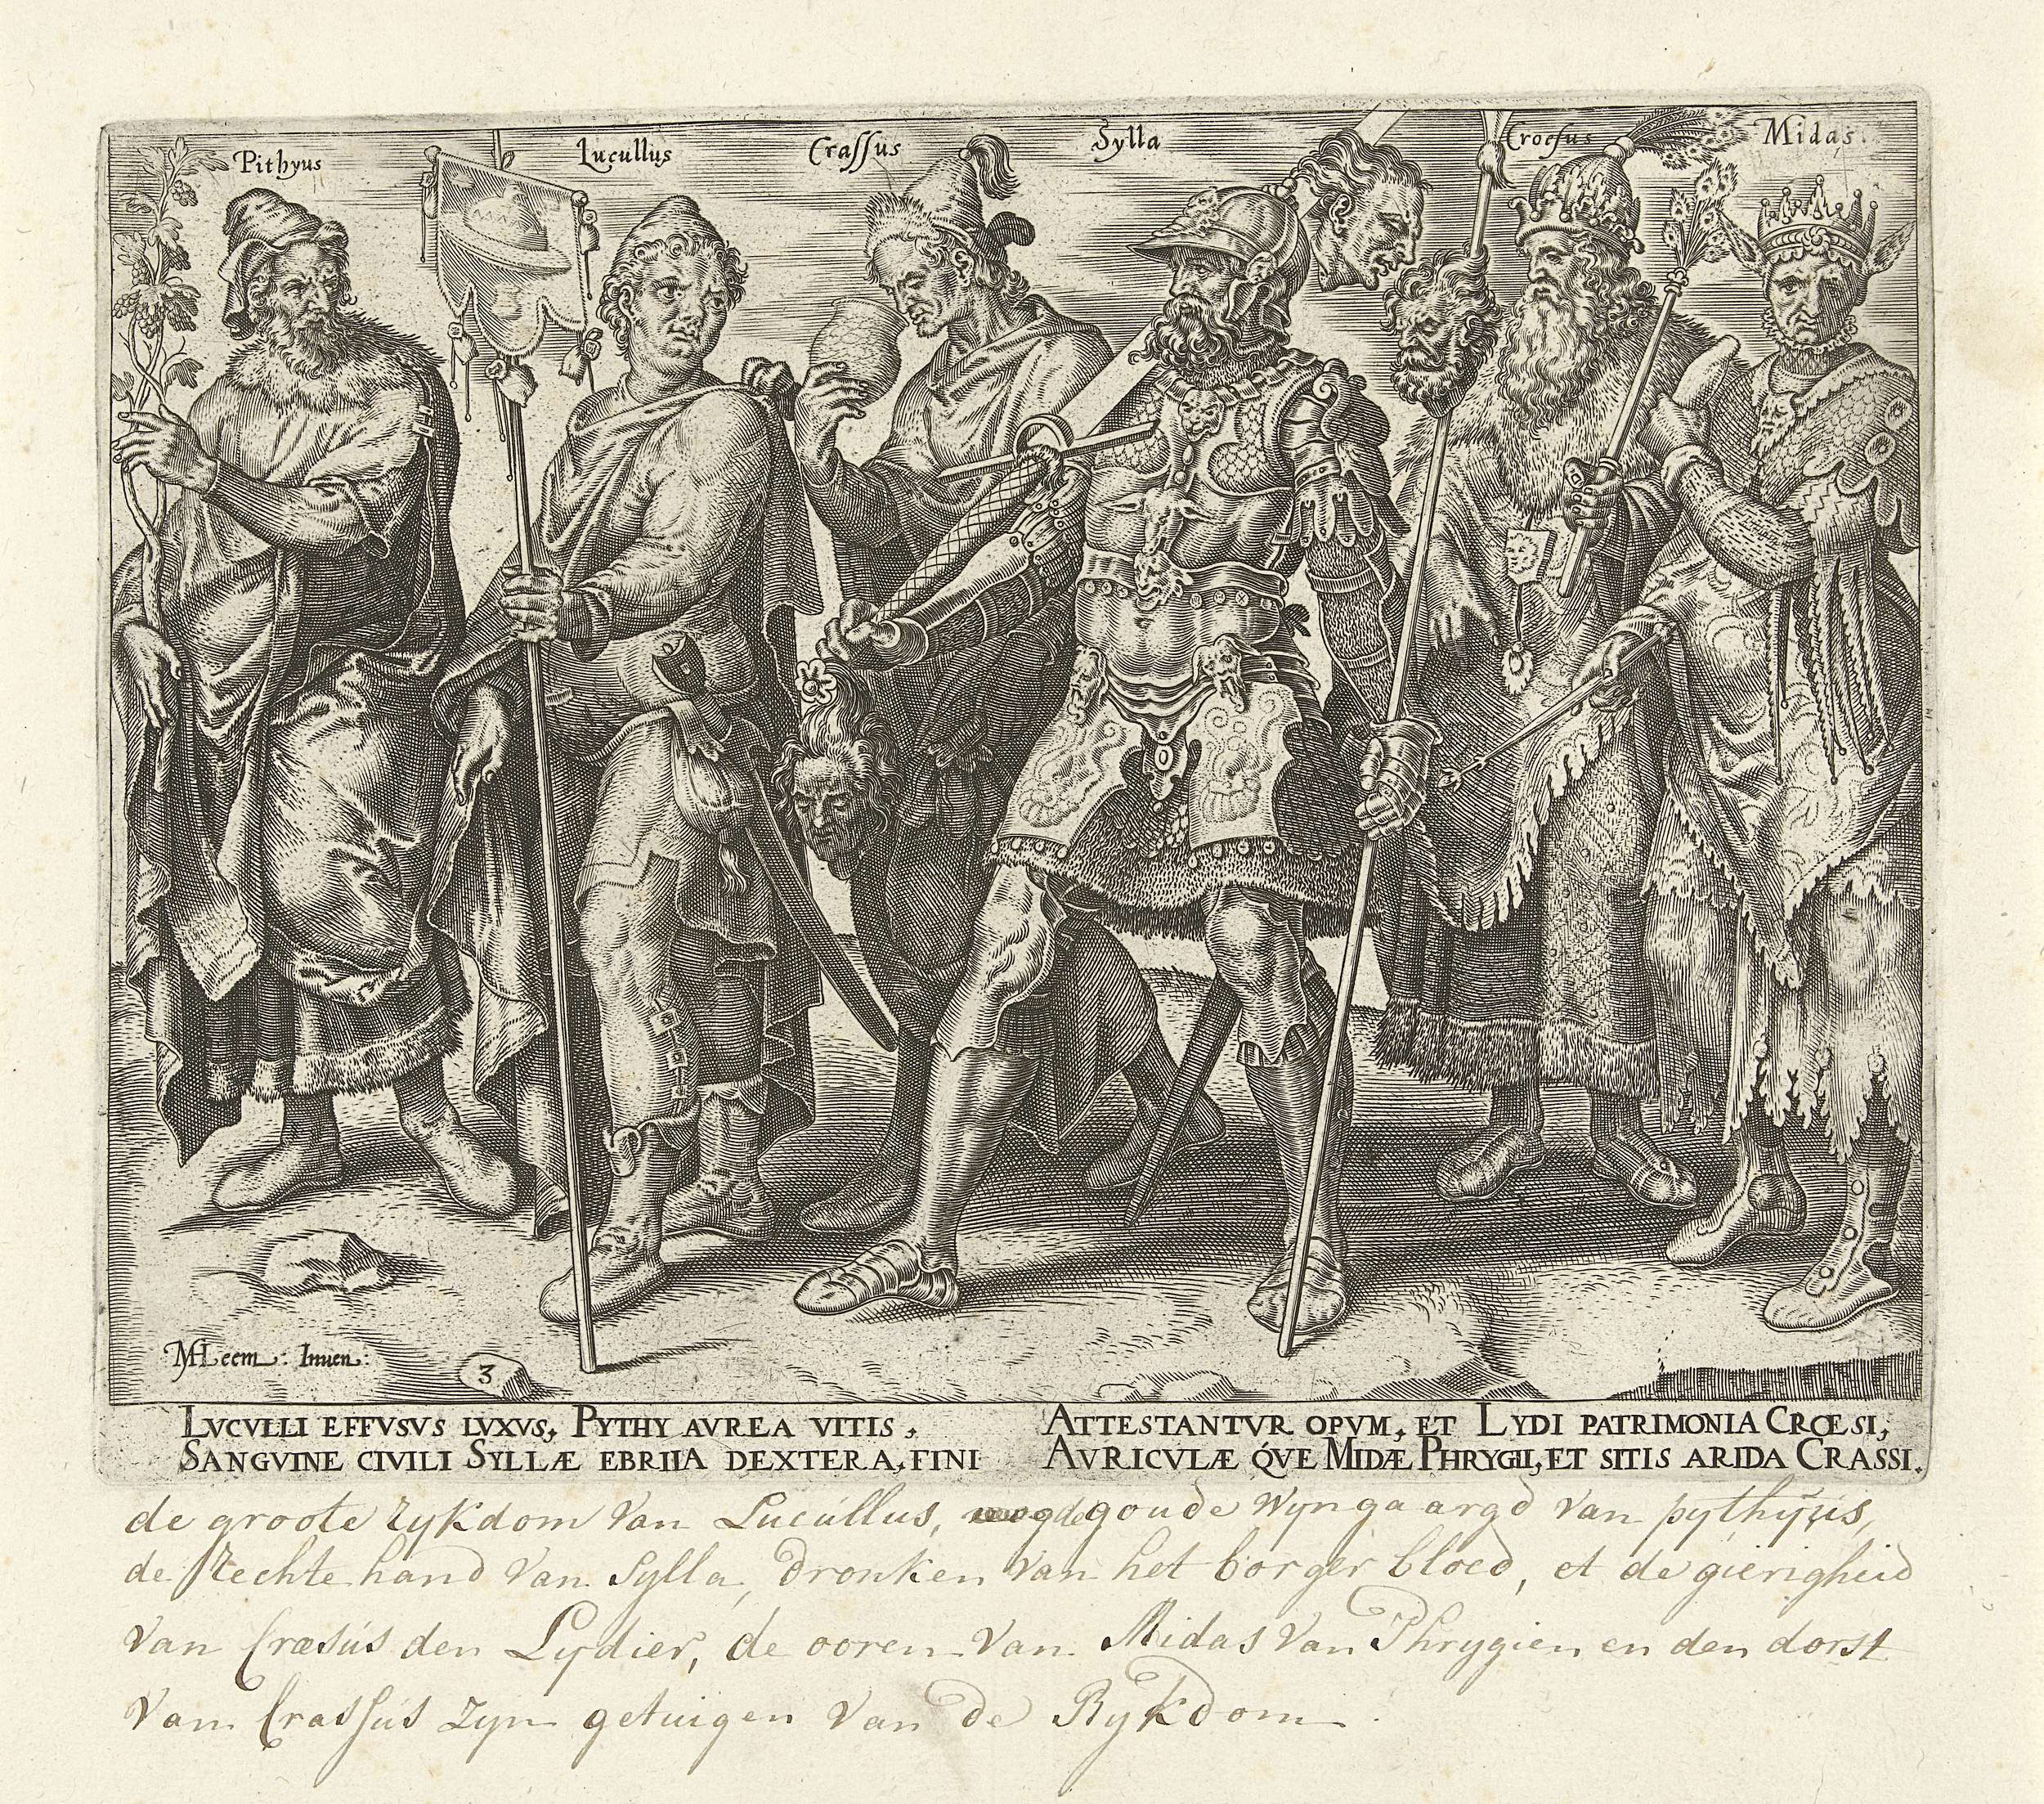 Pithyus Lucullus Crassus Sylla Croesus Midas.
MHeem: Inuen:
3
LVCVLLI EFFVSVS LVXVS, PYTHY AVREA VITIS,
SANGVINE CIVILI SYLLÆ EBRIIA DEXTERA, FINI
ATTESTANTVR OPVM, ET LYDI PATRIMONIA CRŒSI,
AVRICVLÆ QVE MIDÆ PHRYGII, ET SITIS ARIDA CRASSI.
de groote rykdom van Lucullus, de goude wyngaargd van pythyus,
de Rechte hand van Sylla, dronken van het borger bloed, et de gierigheid
van Cræsus den Lydier, de ooren van Midas van Phrygien en den dorst
van Crassus zyn getuigen van de Rykdom.